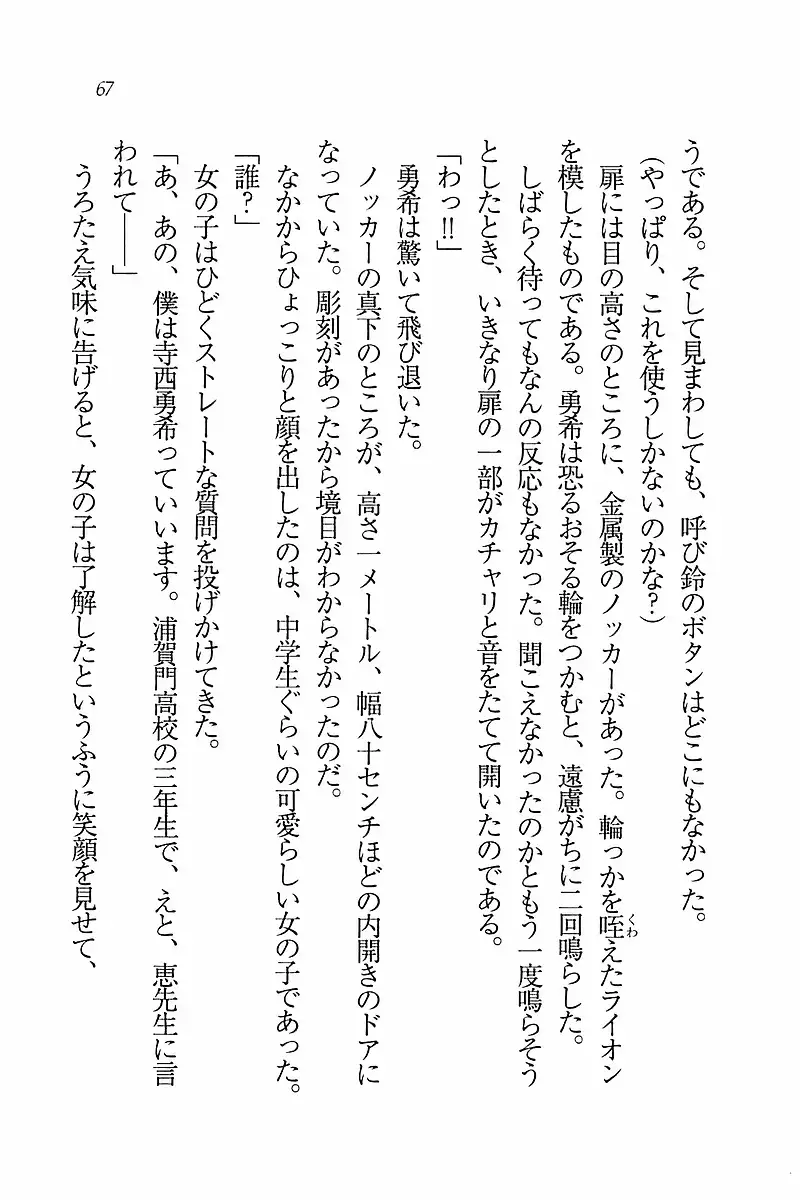 67
うである。そして見まわしても、呼び鈴のボタンはどこにもなかった。
(やっぱり、これを使うしかないのかな?)
扉には目の高さのところに、金属製のノッカーがあった。輪っかを咥えたライオン
くわ
を模したものである。勇希は恐るおそる輪をつかむと、遠慮がちに二回鳴らした。
しばらく待ってもなんの反応もなかった。聞こえなかったのかともう一度鳴らそう
としたとき、いきなり扉の一部がカチャリと音をたてて開いたのである。
「わっ!!」
勇希は驚いて飛び退いた。
ノッカーの真下のところが、高さ一メートル、幅八十センチほどの内開きのドアに
なっていた。彫刻があったから境目がわからなかったのだ。
なかからひょっこりと顔を出したのは、中学生ぐらいの可愛らしい女の子であった。
「誰?」
女の子はひどくストレートな質問を投げかけてきた。
「あ、あの、僕は寺西勇希っていいます。浦賀門高校の三年生で、えと、恵先生に言
われて――」
うろたえ気味に告げると、女の子は了解したというふうに笑顔を見せて、